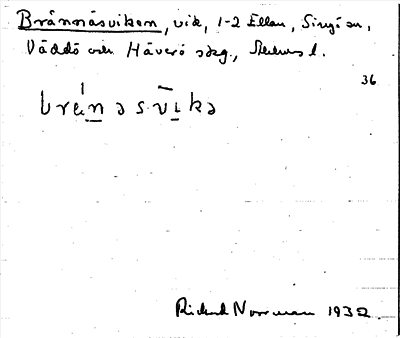 Brännäsviken, vik, 1-2 Ellan, Singö sn,
Väddö och Häverö skg., Sthlms l.
36
brän̲əsvi̲kə
Rickard Norrman 1932.